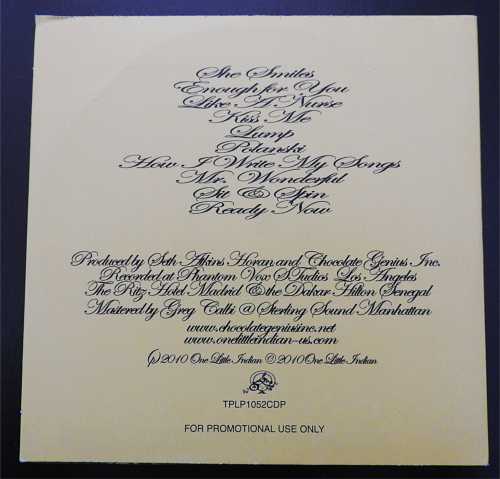 She Smiles
Enough for You
Like A Nurse
Kiss Me
Lump
Polanski
How I Write My Songs
Mr. Wonderful
Sit & Spin
Ready Now
Produced by Seth Atkins Horan and Chocolate Genius Inc.
Recorded at Phantom Vox STudios Los Angeles
The Ritz Hotel Madrid & the Dakar Hilton Senegal
Mastered by Greg Calbi @ Sterling Sound Manhattan
www.chocolategeniusinc.net
www.onelittleindian-us.com
(p) 2010 One Little Indian © 2010 One Little Indian
TPLP1052CDP
FOR PROMOTIONAL USE ONLY